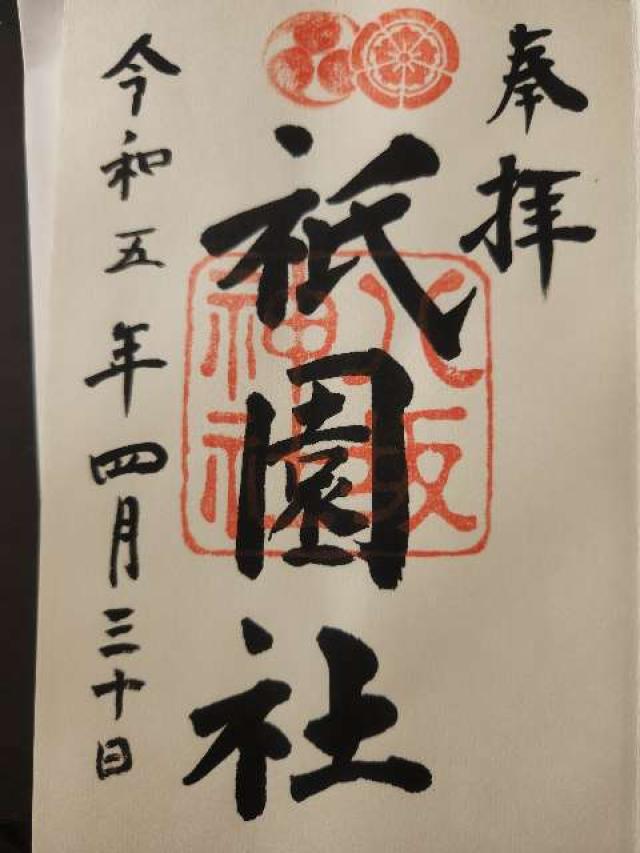 奉拝
祇園社
八坂
神社
令和五年四月三十日